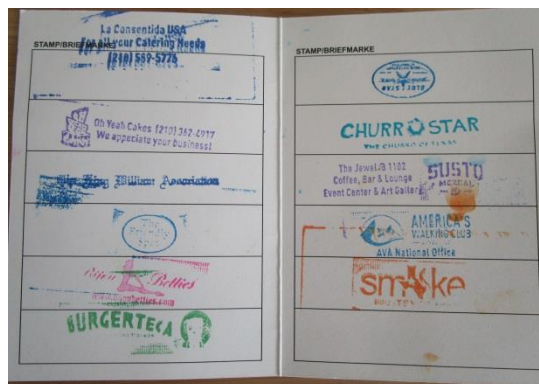 La Consentida USA
For all your Catering Needs
STAMP/BRIEFMARKE
(210) 589-5776
Oh Yeah Cakes (210) 362-4917
We appreciate your business!
King William Association
The
Betties
BURGERTECA
STAMP/BRIEFMARKE
CHURRO STAR
THE CHURRO OF TEXAS
The Jewel/B 1102
Coffee, Bar & Lounge
Event Center & Art Gallery
SUSTO
MEZCAL
AMERICA'S
WALKING CLUB
AVA National Office
smoke